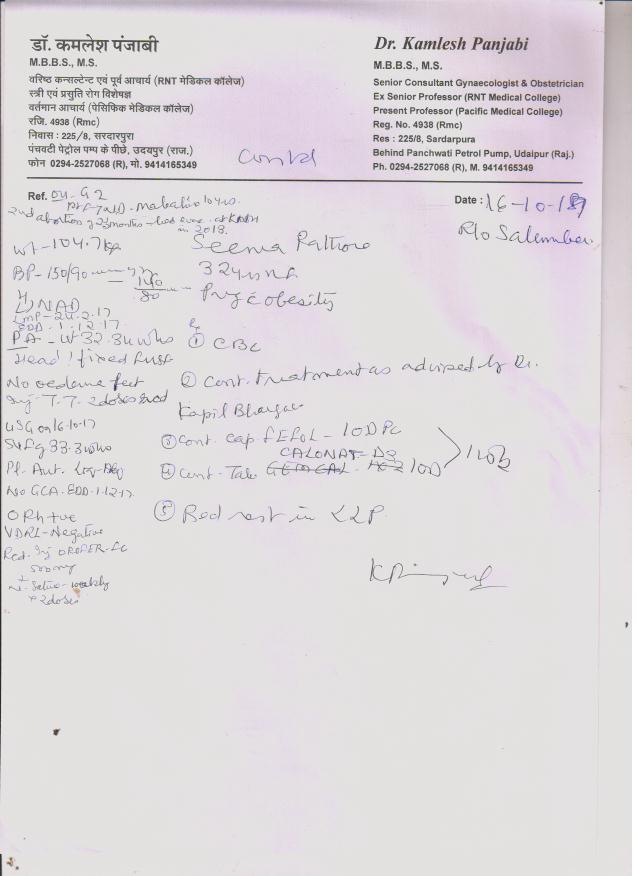 डॉ. कमलेश पंजाबी
M.B.B.S., M.S.
वरिष्ठ कन्सल्टेन्ट एवं पूर्व आचार्य (RNT मेडिकल कॉलेज)
स्त्री एवं प्रसुति रोग विशेषज्ञ
वर्तमान आचार्य (पेसिफिक मेडिकल कॉलेज)
रजि. 4938 (Rmc)
निवास : 225/8, सरदारपुरा
पंचवटी पेट्रोल पम्प के पीछे, उदयपुर (राज.)
फोन 0294-2527068 (R), मो. 9414165349
Dr. Kamlesh Panjabi
M.B.B.S., M.S.
Senior Consultant Gynaecologist & Obstetrician
Ex Senior Professor (RNT Medical College)
Present Professor (Pacific Medical College)
Reg. No. 4938 (Rmc)
Res : 225/8, Sardarpura
Behind Panchwati Petrol Pump, Udaipur (Raj.)
Ph. 0294-2527068 (R), M. 9414165349
Contd
Ref.
Date : 16-10-
2nd abortion
months
in 2013.
R/o Salumber
Wt - 104.7 kg
Seema Rathore
BP - 150/90
140/80
32
Preg c obesity
NAD
LMP - 24.2.17
EDD - 1.12.17
PA - Ut 32.34 wks
Rx
① CBC
Head
No oedema feet
② Cont. treatment as advised by Dr.
Kapil Bhargav
Inj T.T. 2 doses
USG on 16-10-17
③ Cont. cap FEFOL - 1OD PC
SLF 33.3 wks
CALONAT-D3
④ Cont. Tab 1OD
Pl. Ant. Liq-Adq
No GCA. EDD-1-12-17
⑤ Bed rest in LLP
O Rh +ve
VDRL - Negative
500 mg
weekly
x 2 doses